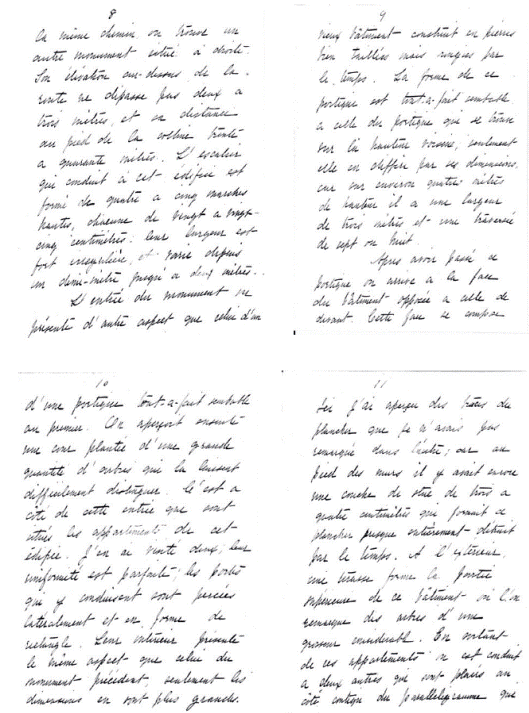 8
Ce même chemin on trouve un
autre monument situé à droite.
Son élévation au-dessus de la
route ne dépasse pas deux a
trois mètres, et sa distance
au pied de la colline trente
a quarante mètres. L'escalier
qui conduit à cet édifice est
formé de quatre a cinq marches
hautes, chacune de vingt a vingt-
cinq centimètres. Leur largeur est
fort irregulière, et varie depuis
un demi-mètre jusqu'a deux mètres.
L'entrée du monument ne
présente d'autre aspect que celui d'un
9
vieux bâtiment construit en pierres
bien taillées mais rongées par
le temps. La forme de ce
portique est tout-a-fait semblable
a celle du portique que se trouve
sur la hauteur voisine, seulement
elle en diffère par ses dimensions,
car sur environ quatre mètres
de hauteur il a une largeur
de trois mètres et une traversée
de sept ou huit.
Après avoir passé ce
portique on arrive a la face
du bâtiment opposée a celle de
devant. Cette face se compose
10
d'une portique tout-a-fait semblable
au premier. On aperçoit ensuite
une cour plantée d'une grande
quantité d'arbres que la laissent
difficilement distinguer. C'est a
côté de cette entrée que sont
situés les appartements de cet
édifice. J'en ai visité deux; leur
uniformité est parfaite; les portes
qui y conduisent sont percées
latéralement et en forme de
rectangle. Leur intérieur présente
le même aspect que celui du
monument précédent, seulement les
dimensions en sont plus grandes.
11
Ici j'ai aperçu des traces du
plancher que je n'avais pas
remarqué dans l'autre; car au
pied des murs il y avait encore
une couche de stuc de trois a
quatre centimètres qui formait ce
plancher presque entièrement détruit
par le temps. A l'extérieur,
une terrasse forme la partie
supérieure de ce bâtiment où l'on
remarque des arbres d'une
grosseur considérable. En sortant
de ces appartements on est conduit
a deux autres que sont placés au
côté contigu du parallélogramme que